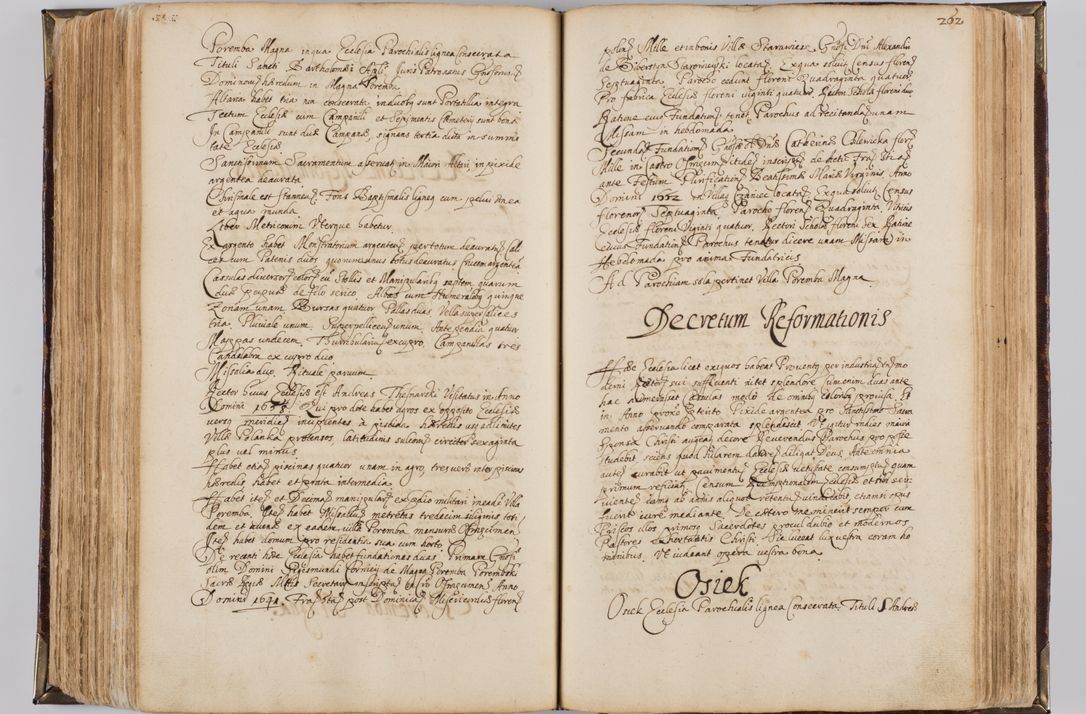 Poremba Magna in qua Ecclesia Parochialis lignea Consecrata
Tituli Sancti Bartholomæi Apli Juris Patronatus Gnosorum
Dominorum hæredum in Magna Poremba
Altaria habet tria non consecrata, in duobus sunt Portatilia integra
Tectum Ecclesiæ cum Campanili et Sepimentis Cæmeterij sunt bona
In Campanili sunt duæ Campanæ, signans tertia dicta in summi
tate Ecclesiæ
Sanctissimum Sacramentum asservat in Maiori Altari, in pixide
argentea deaurata
Chrismale est stanneum, Fons Baptismalis ligneus cum pelvi
et aqua munda
Liber Metricorum Uterque habetur
Ex argento habet Monstratorium argenteum per totum deauratum, Cal
ices cum Patenis duos quorum unus totus deauratus Crucem argenteam
Casulas diversorum colorum cum Stollis et Manipularijs septem quarum
duæ de filo serico, Albas cum Humeralibus quinque
Zonam unam, Bursas quatuor Pallas duas, Vella super Calices
tria, Pluviale unum, Superpelliceum unum, Antependia quatuor
Mappas undecem, Thurribularium ex cupro, Campanulas tres
Candelabra ex cupro duo
Missalia duo, Rituale parvum
Rector huius Ecclesiæ est Andreas Institutus in Anno
Domini 1658. Qui pro dote habet agros ex opposito Ecclesiæ
versus meridiem incipientes à piscina hæredis usq ad limites
Villæ Polanka protensos, latitudinis sulcorum circiter sexaginta
plus vel minus
Habet etiam piscinas quatuor unam in agro, tres vero inter piscinas
hæredis, habet et prata intermedia
Habet item et Decimam manipularem ex prædio militari in eadem Villa
Poremba, Item habet Missalium metretas tredecim siliginis toti
dem et avenæ ex eadem villa Poremba mensuræ
Item habet domum pro residentia sua cum horto
De recenti hæc Ecclesia habet fundationes duas, Primam Gnosi
olim Domini Sigismundi de Magna Poremba Porembski
Sacræ Regiæ Mttis Secretarij inscriptam in Cro Osvecimen Anno
Domini 1641. Fra 6ta post Dominicam Misericordiæ florenorum
262
polon Mille et in bonis Villæ Starawies Gnosi Dni Alexandri
de Biberstyn Starowieyski locatam, Ex qua solvit Census florenos
Septuaginta, Parocho cedunt floreni Quadraginta quatuor
Pro fabrica Ecclesiæ floreni viginti quatuor, Rectori Scholæ floreni duo
Ratione cuius Fundationis tenet Parochus ad recitandam unam
Missam in hebdomada
Secundam Fundationem Gnosæ Dnæ Catherinæ flor
Mille in Castro Osvecimen itidem inscriptam
ante Festum Purificationis Beatissimæ Mariæ Virginis Anno
Domini 1652 in Villa Czaniec locatam, Ex qua solvit Census
florenorum Septuaginta, Parocho florenos Quadraginta
Ecclesiæ floreni Viginti quatuor, Rectori Scholæ floreni sex, Ratione
cuius Fundationis Parochus tenetur dicere unam Missam in
Hebdomada pro anima Fundatricis
Ad Parochiam sola pertinet Villa Poremba Magna
Decretum Reformationis
Hæc Ecclesia licet exiguos habeat Proventus per industriam mo
derni Rectoris sui suffluenti nitet splendore
hac Casulas modo de omnibus coloribus provisa, Et
in Anno proxe præterito Pixide argentea pro Sanctissimo Sacra
mento asservando comparata splendescit, Ut igitur in dies maiora
Sponsæ Christi augeat decora Reverendus Parochus pro posse
studebit, sciens quod hilarem datorem deligat Deus, Ante omnia
autem curabit ut pavimentum Ecclesiæ vetustate consumptum quam
primum reficiat, Censum Ecclesiæ et
retentum vindicabit, etiamsi opus
fuerit iure mediante. De cætero meminerit semper cum
Priscos illos primosq Sacerdotes procul dubio et modernos
Pastores exhortantis Christi Sic luceat lux vestra coram ho
minibus, Ut videant opera vestra bona
Osiek
Osiek Ecclesia Parochialis lignea Consecrata, Tituli S Andreæ